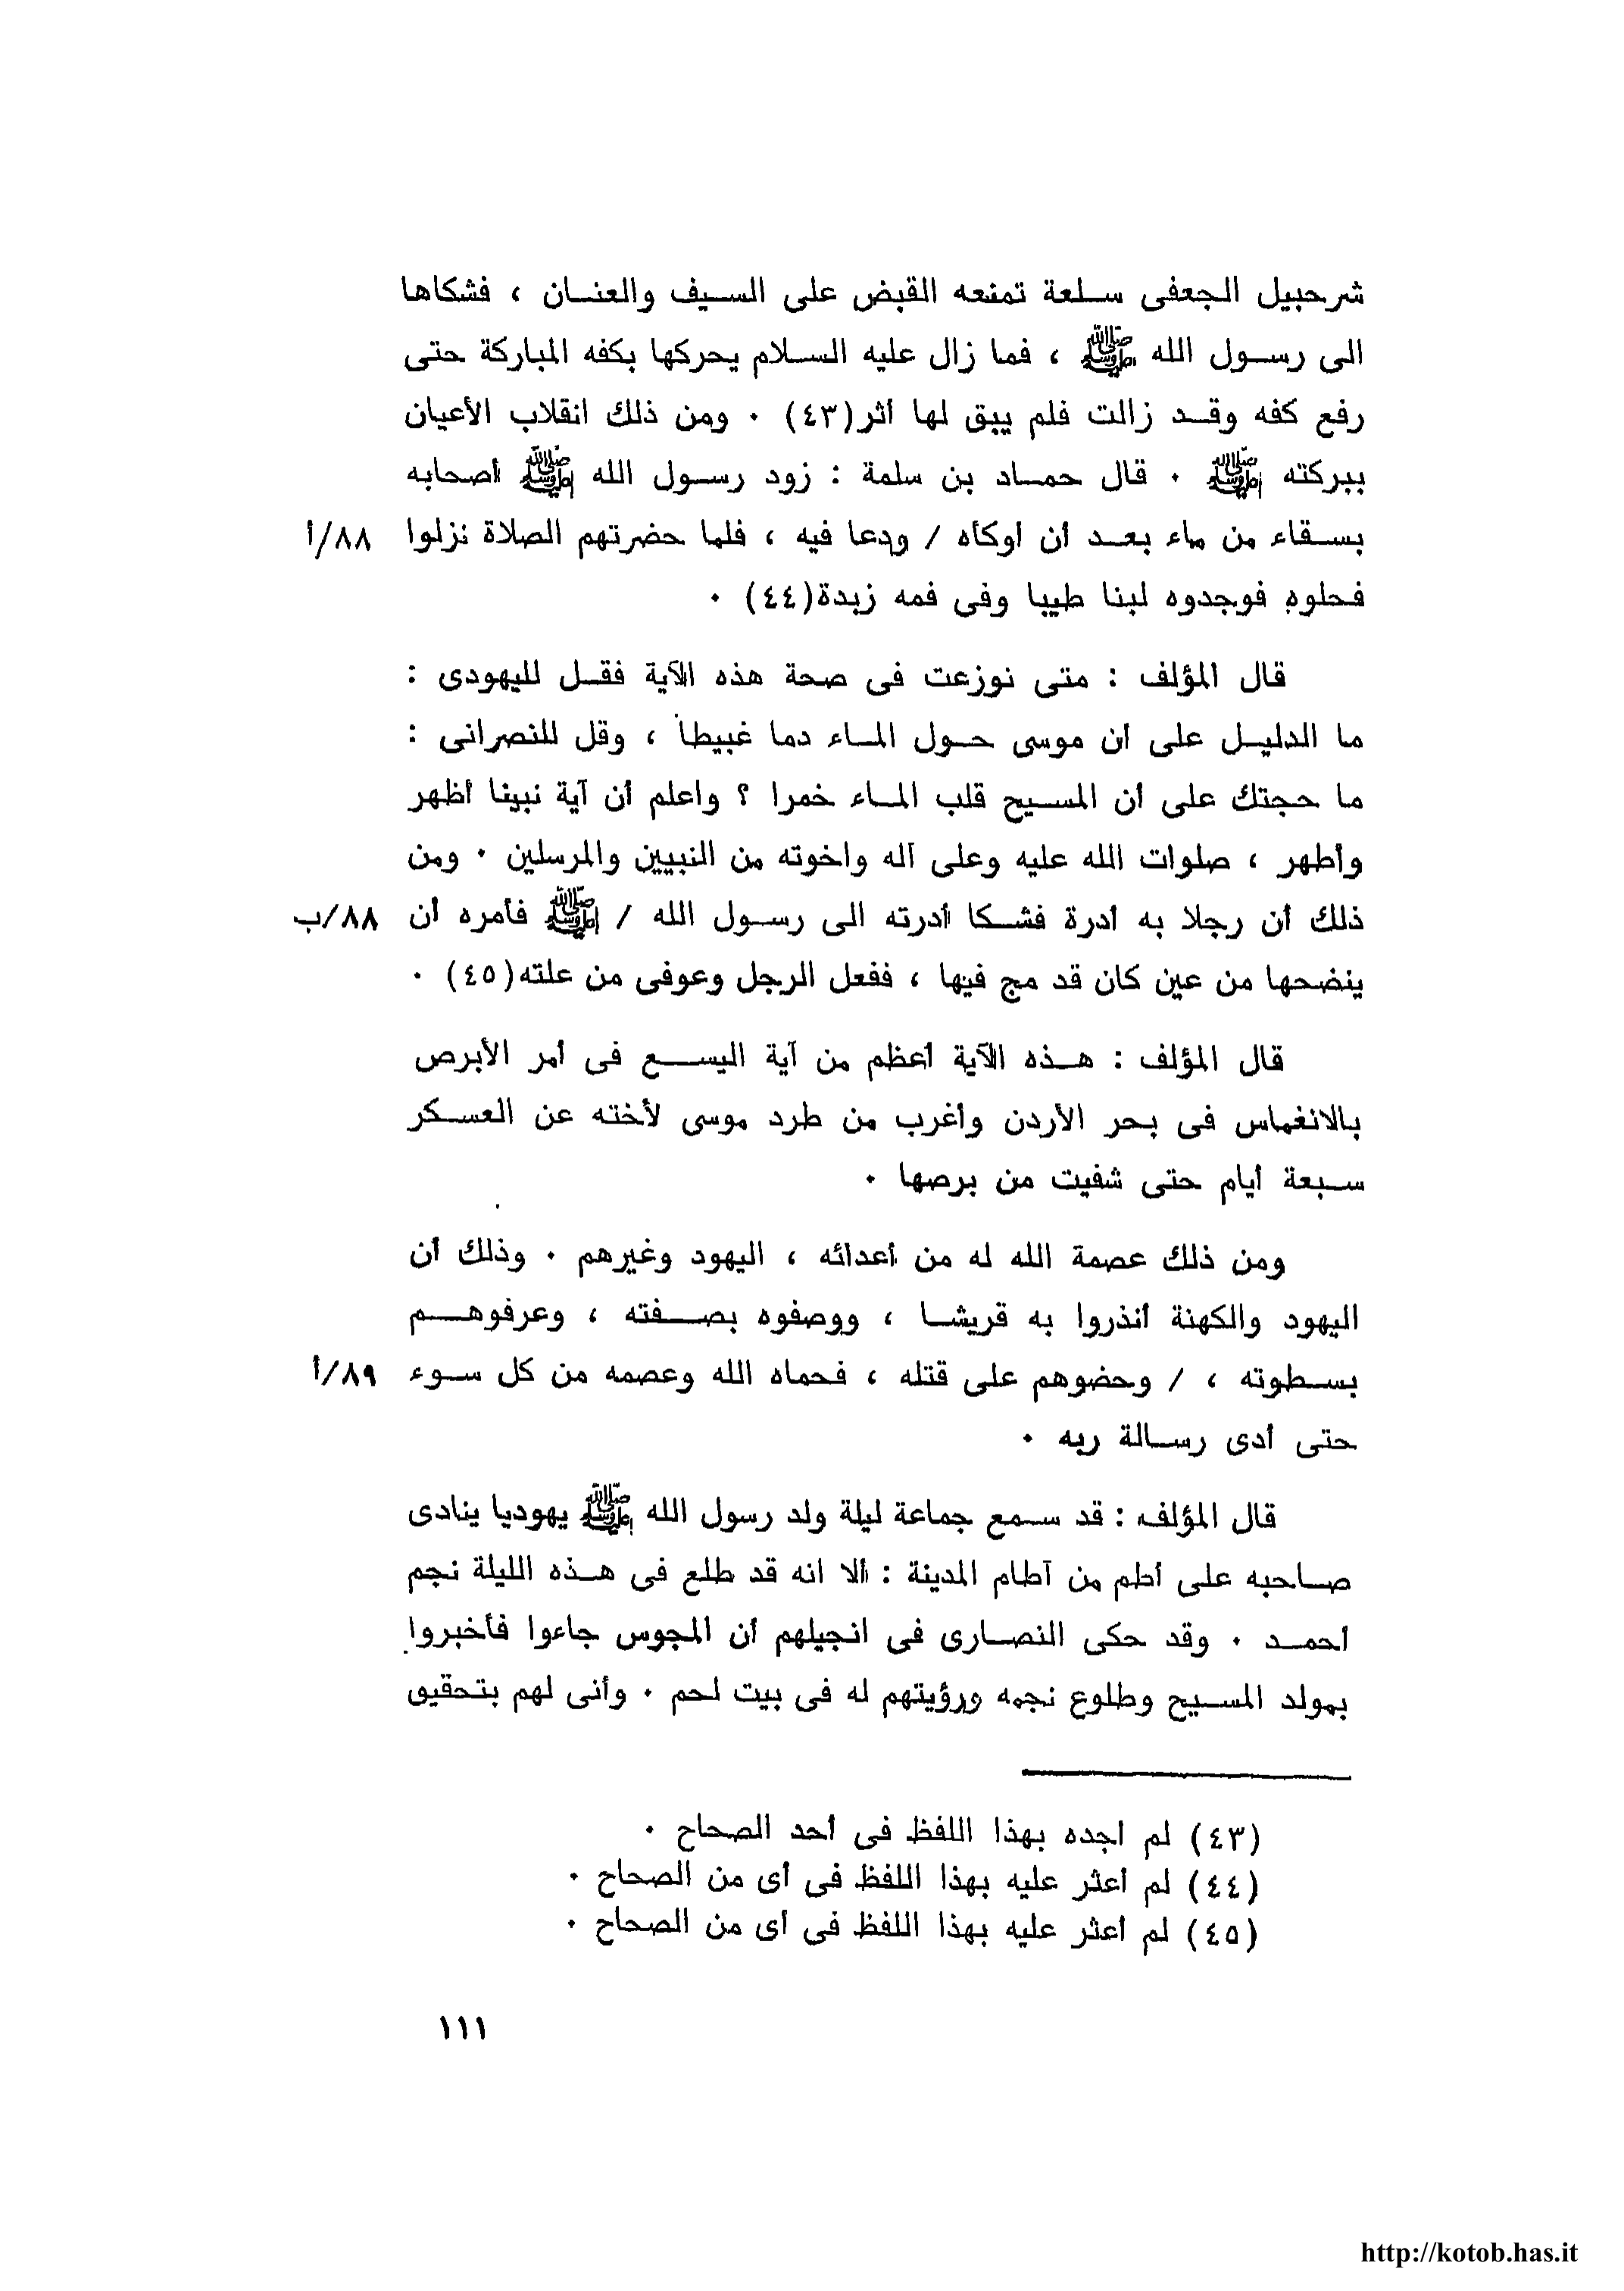 شرحبيل الجعفى سلعة تمنعه القبض على السيف والعنان ، فشكاها
الى رسول الله ﷺ ، فما زال عليه السلام يحركها بكفه المباركة حتى
رفع كفه وقد زالت فلم يبق لها أثر(٤٣) ٠ ومن ذلك انقلاب الأعيان
ببركته ﷺ ٠ قال حماد بن سلمة : زود رسول الله ﷺ أصحابه
بسقاء من ماء بعد أن أوكأه / ودعا فيه ، فلما حضرتهم الصلاة نزلوا ٨٨/أ
فحلوه فوجدوه لبنا طيبا وفى فمه زبدة(٤٤) ٠
قال المؤلف : متى نوزعت فى صحة هذه الآية فقل لليهودى :
ما الدليل على أن موسى حول الماء دما غبيطا ، وقل للنصرانى :
ما حجتك على أن المسيح قلب الماء خمرا ؟ واعلم أن آية نبينا أظهر
وأطهر ، صلوات الله عليه وعلى آله واخوته من النبيين والمرسلين ٠ ومن
ذلك أن رجلا به أدرة فشكا أدرته الى رسول الله / ﷺ فأمره أن ٨٨/ب
ينضحها من عين كان قد مج فيها ، ففعل الرجل وعوفى من علته(٤٥) ٠
قال المؤلف : هذه الآية أعظم من آية اليسع فى أمر الأبرص
بالانغماس فى بحر الأردن وأغرب من طرد موسى لأخته عن العسكر
سبعة أيام حتى شفيت من برصها ٠
ومن ذلك عصمة الله له من أعدائه ، اليهود وغيرهم ٠ وذلك أن
اليهود والكهنة أنذروا به قريشا ، ووصفوه بصفته ، وعرفوهم
بسطوته ، / وحضوهم على قتله ، فحماه الله وعصمه من كل سوء ٨٩/أ
حتى أدى رسالة ربه ٠
قال المؤلف : قد سمع جماعة ليلة ولد رسول الله ﷺ يهوديا ينادى
صاحبه على أطم من آطام المدينة : ألا انه قد طلع فى هذه الليلة نجم
أحمد ٠ وقد حكى النصارى فى انجيلهم أن المجوس جاءوا فأخبروا
بمولد المسيح وطلوع نجمه ورؤيتهم له فى بيت لحم ٠ وأنى لهم بتحقيق
(٤٣) لم أجده بهذا اللفظ فى أحد الصحاح ٠
(٤٤) لم أعثر عليه بهذا اللفظ فى أى من الصحاح ٠
(٤٥) لم أعثر عليه بهذا اللفظ فى أى من الصحاح ٠
١١١
http://kotob.has.it